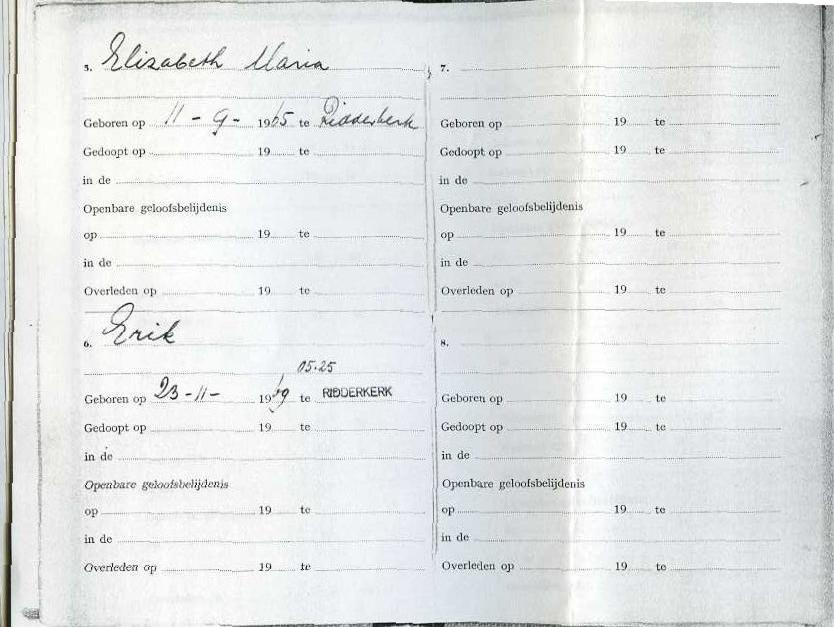 5. Elizabeth Maria
Geboren op 11 - 9 - 1965 te Ridderkerk
Gedoopt op 19 te
in de
Openbare geloofsbelijdenis
op 19 te
in de
Overleden op 19 te
6. Erik
05.25
Geboren op 23 - 11 - 1969 te RIDDERKERK
Gedoopt op 19 te
in de
Openbare geloofsbelijdenis
op 19 te
in de
Overleden op 19 te
7.
Geboren op 19 te
Gedoopt op 19 te
in de
Openbare geloofsbelijdenis
op 19 te
in de
Overleden op 19 te
8.
Geboren op 19 te
Gedoopt op 19 te
in de
Openbare geloofsbelijdenis
op 19 te
in de
Overleden op 19 te